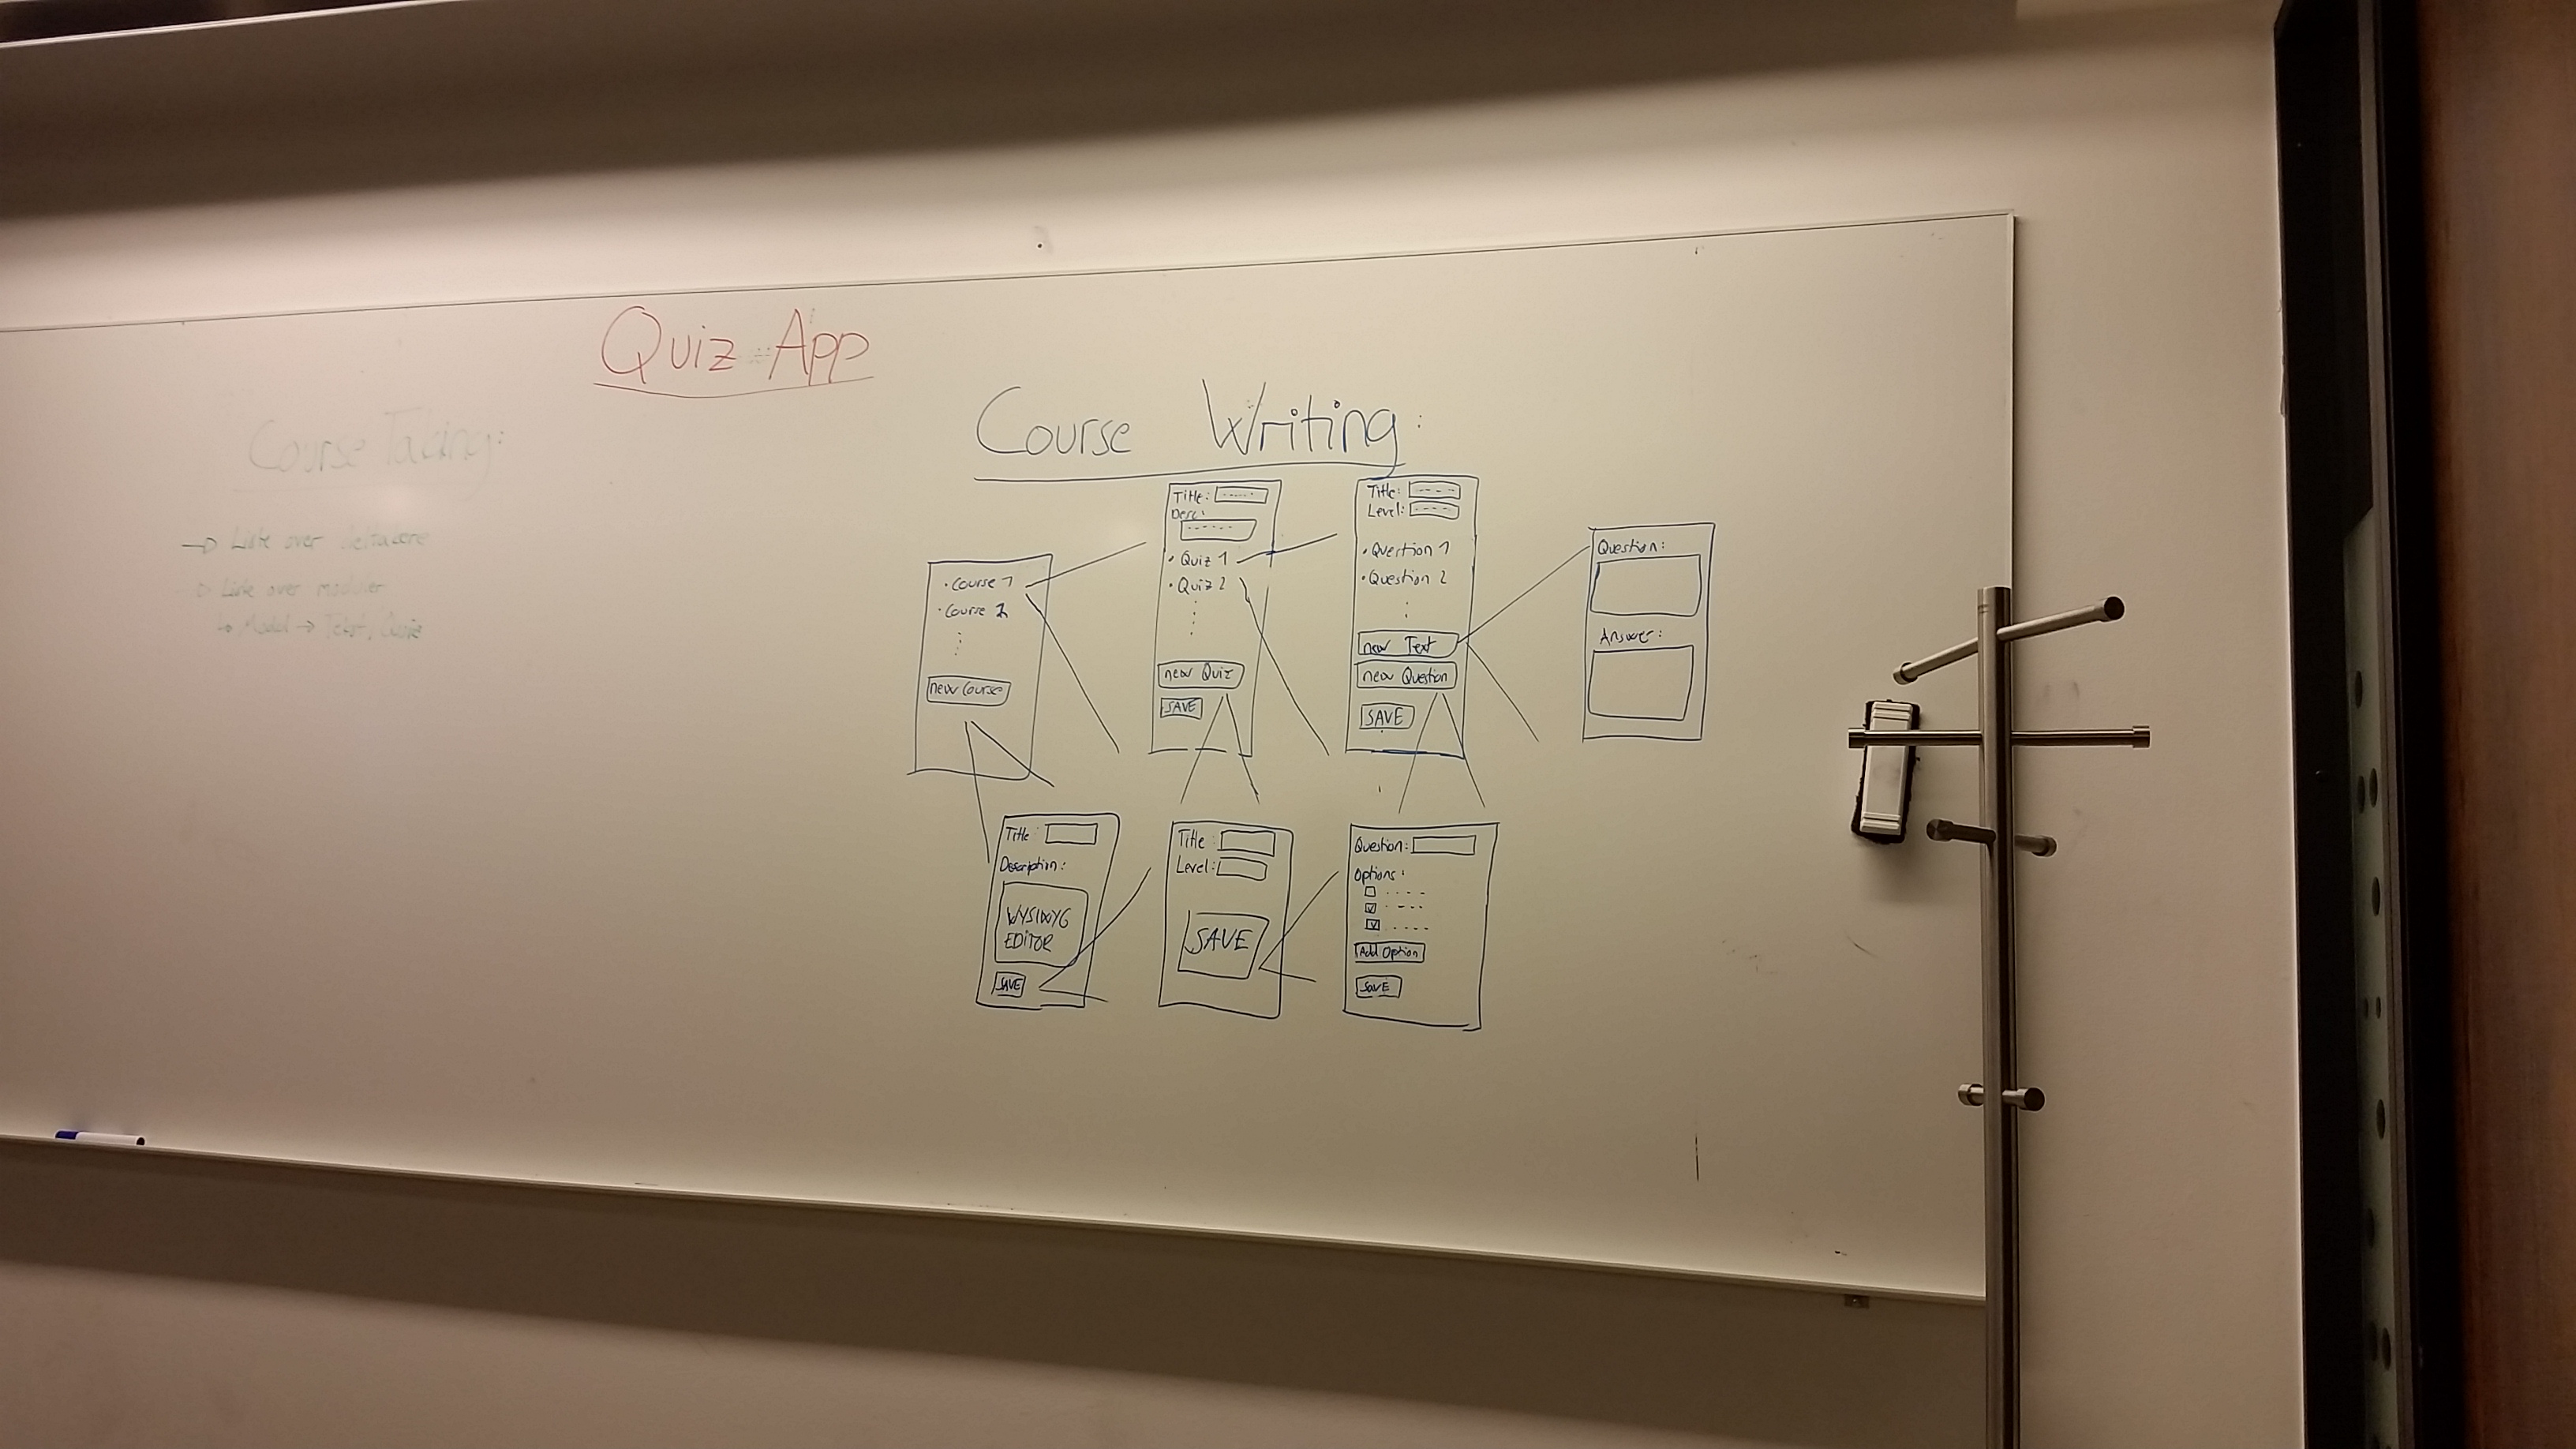 Quiz App
Course Taking:
→ Liste over deltakere
→ Liste over moduler
↳ Modul → Tekst, Quiz
Course Writing:
• Course 1
• Course 2
new Course
Title:
Desc:
• Quiz 1
• Quiz 2
new Quiz
SAVE
Title:
Level:
• Question 1
• Question 2
new Text
new Question
SAVE
Question:
Answer:
Title:
Description:
WYSIWYG
EDITOR
SAVE
Title:
Level:
SAVE
Question:
Options:
Add Option
SAVE